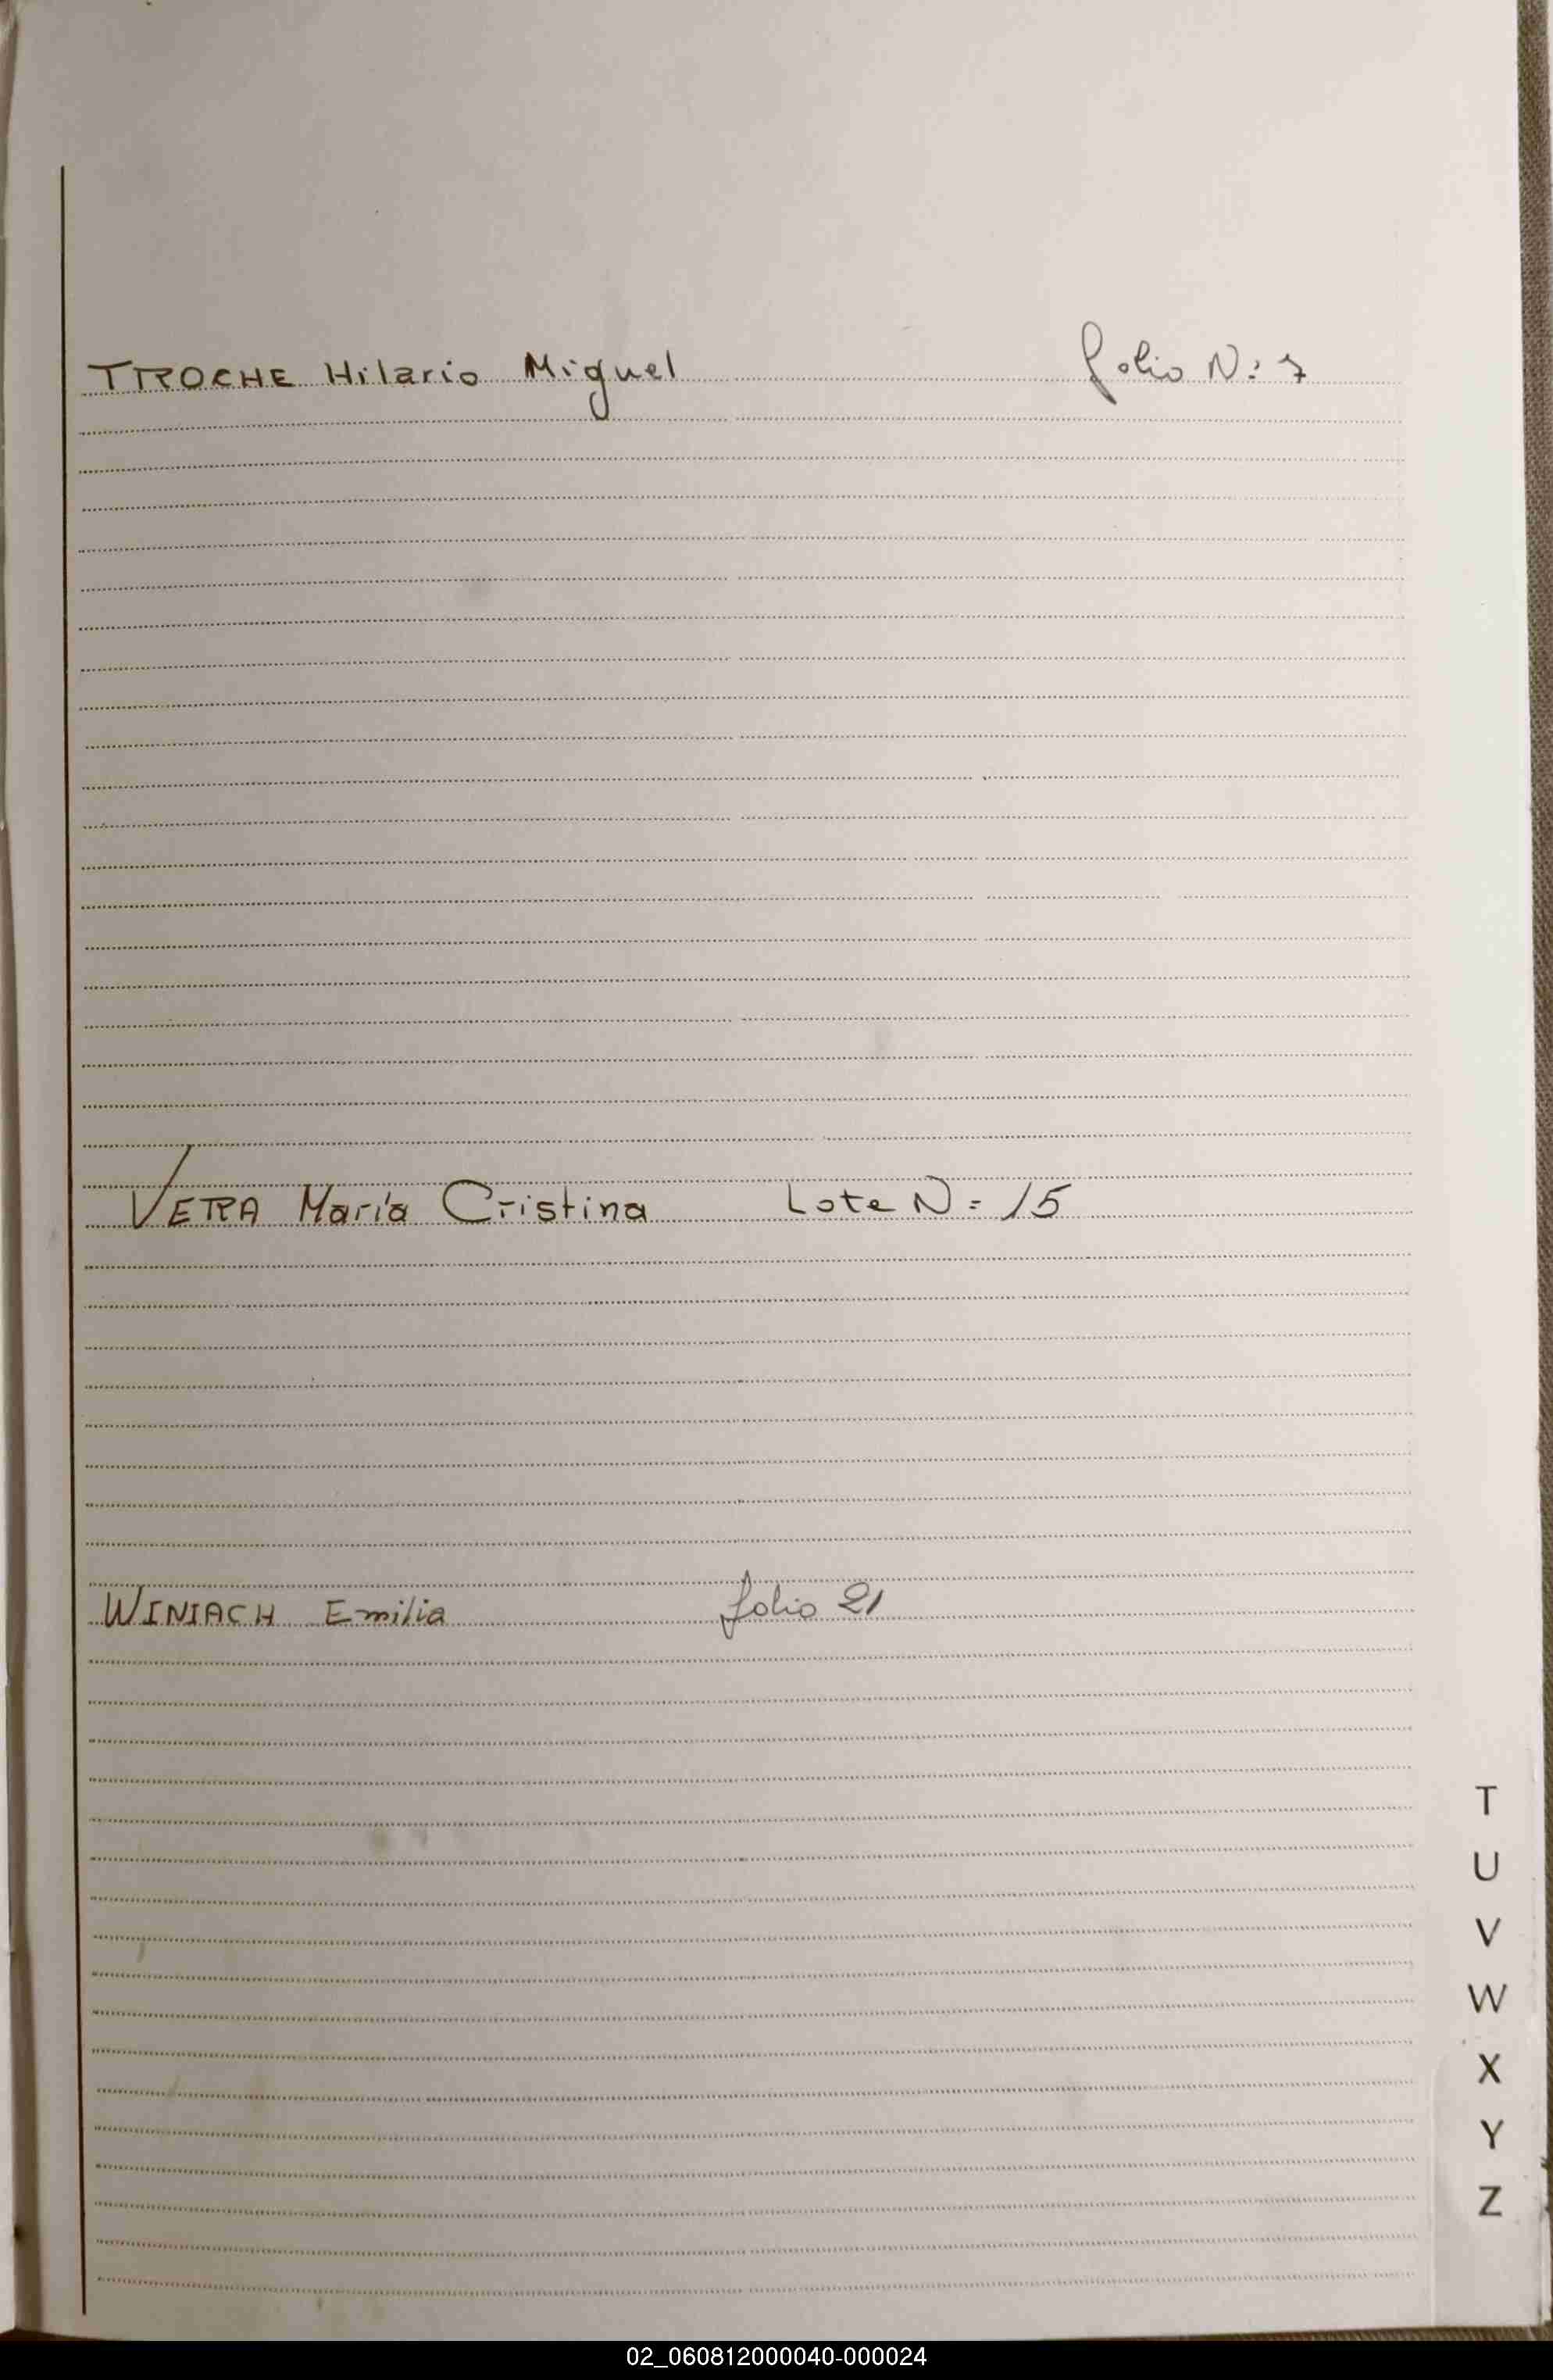 TROCHE Hilario Miguel folio N: 7
VERA María Cristina Lote N= 15
WINIACH Emilia folio 21
T
U
V
W
X
Y
Z
02_060812000040-000024